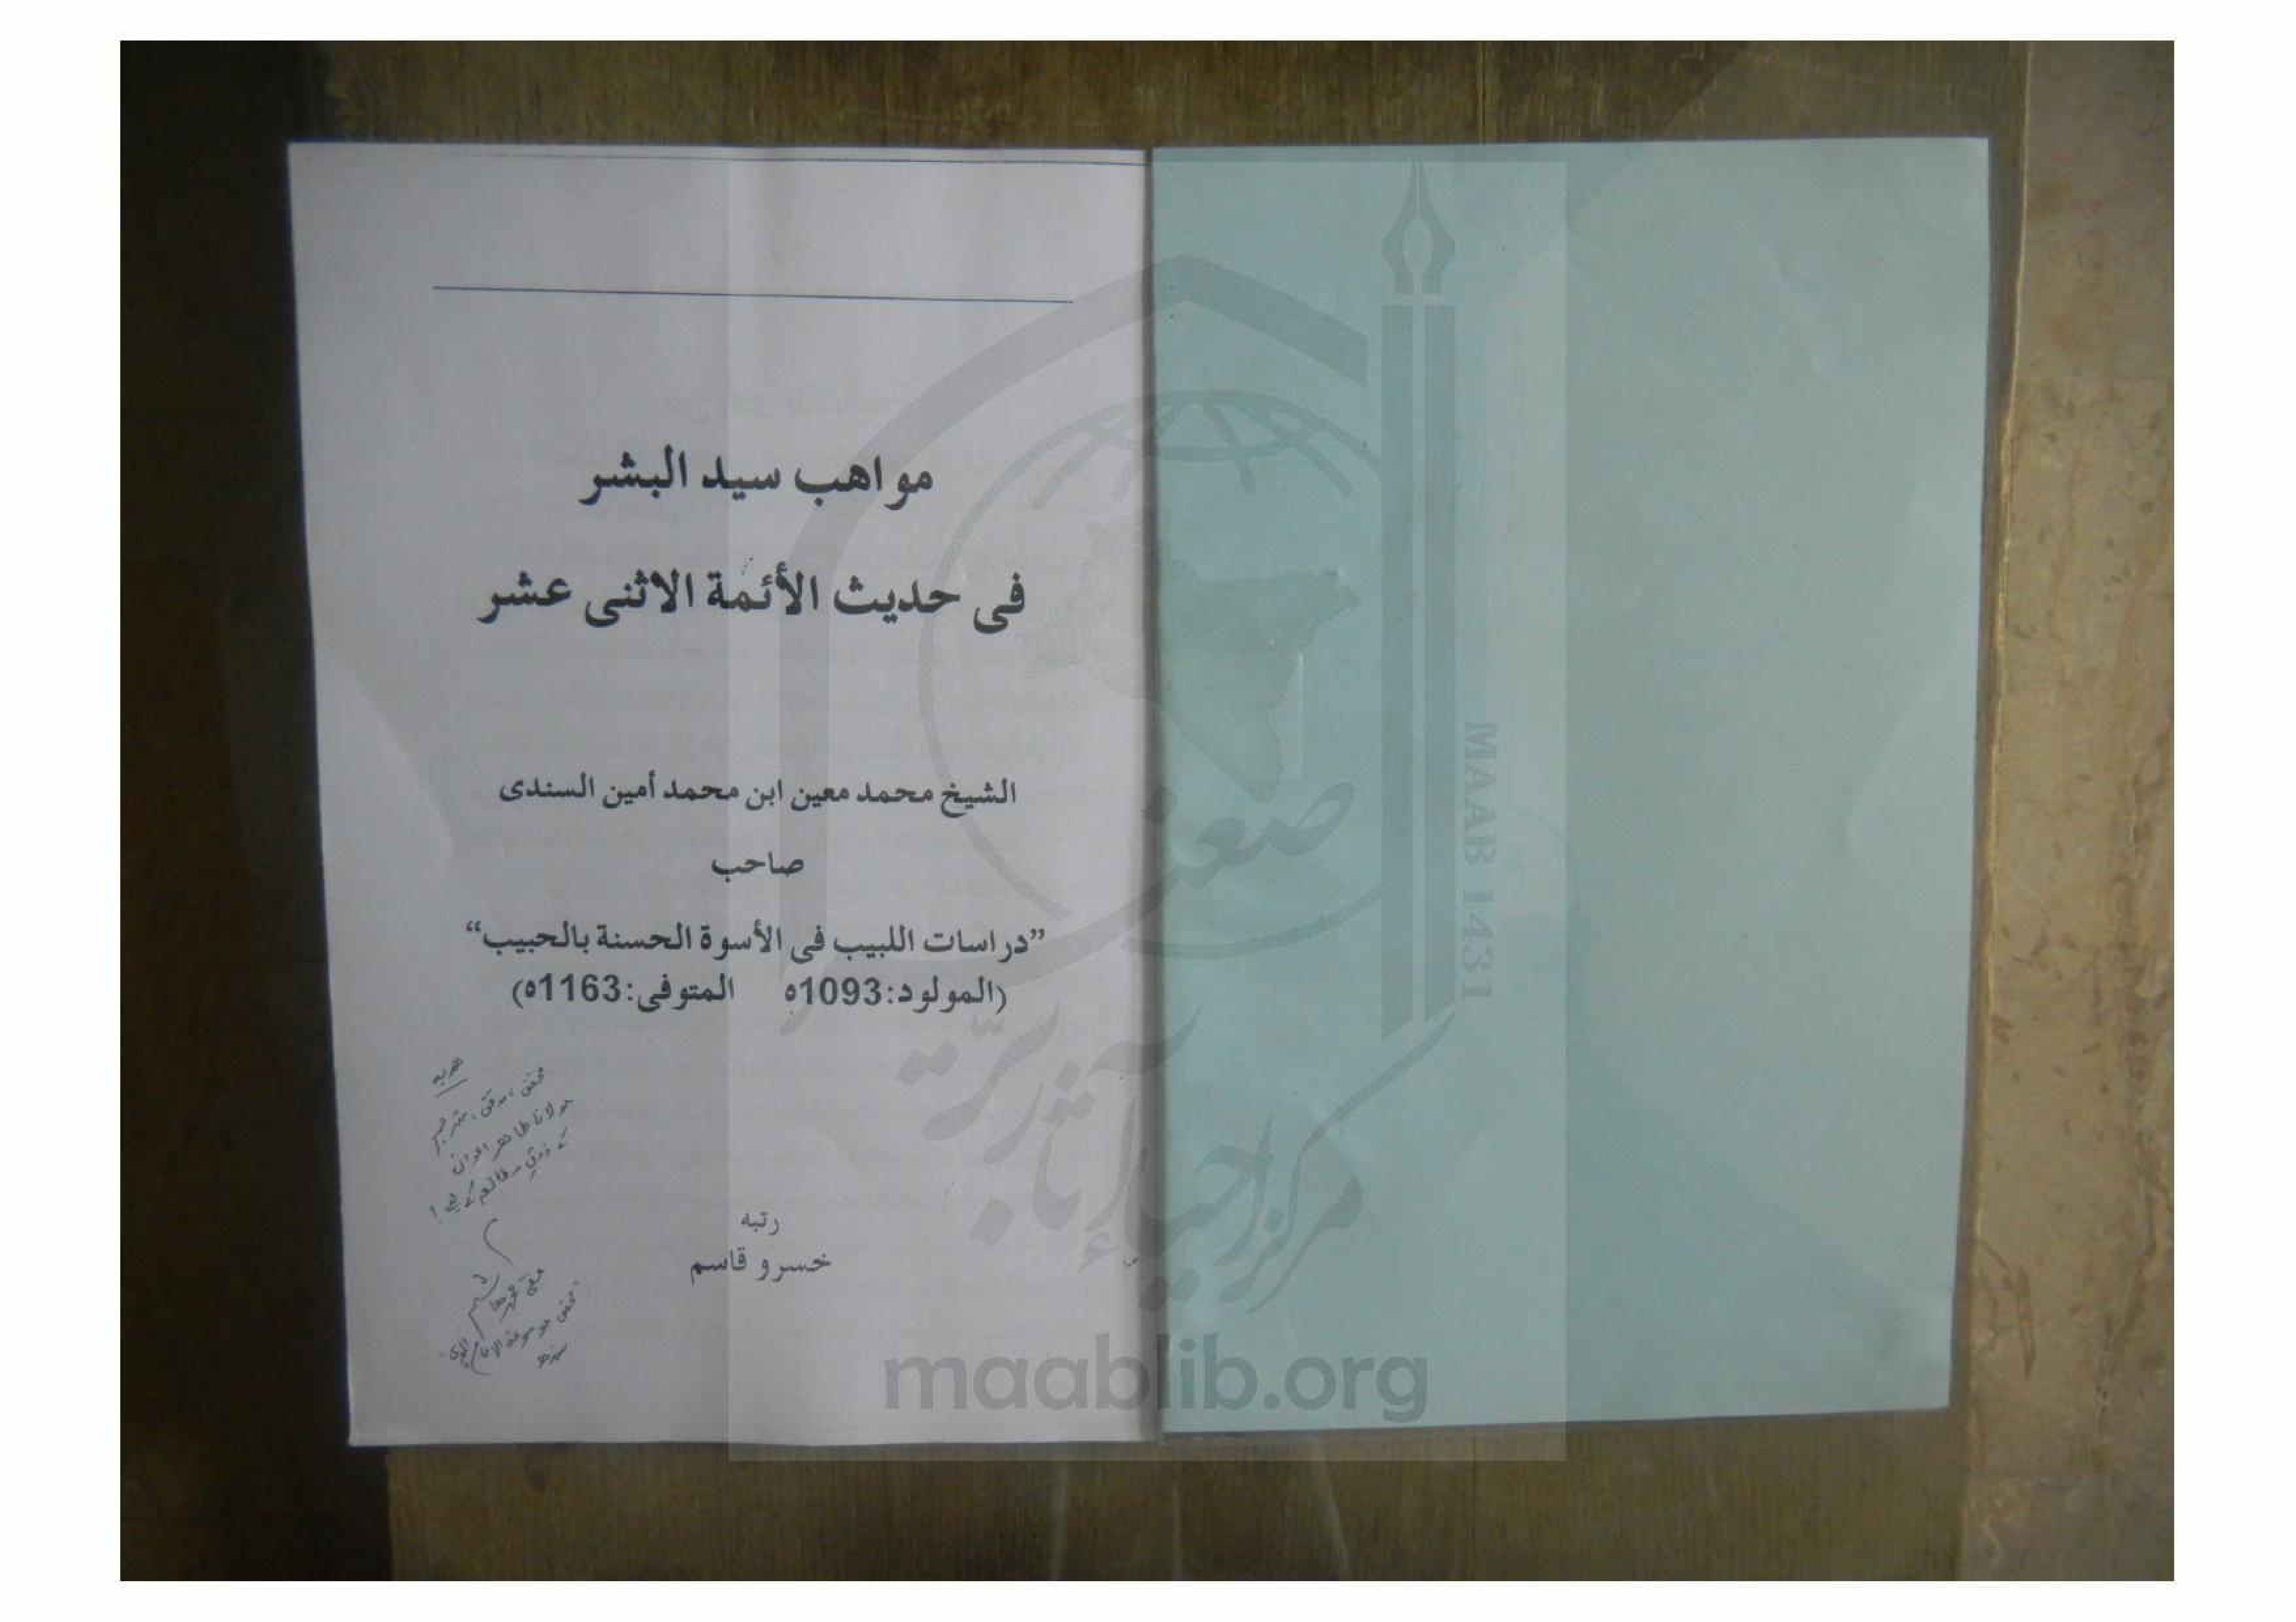 مواهب سيد البشر
فى حديث الأئمة الاثنى عشر
الشيخ محمد معين ابن محمد أمين السندى
صاحب
”دراسات اللبيب فى الأسوة الحسنة بالحبيب“
(المولود:1093ه المتوفى:1163ه)
هدیہ
محقق، مدقق، مترجم
مولانا طاهر
کے ذوقِ مطالعہ کے لیے!
رتبه
خسرو قاسم
محقق موسوعة الامام
سندھ
MAAB 1431
مركز احياء آثار بر صغير
maablib.org